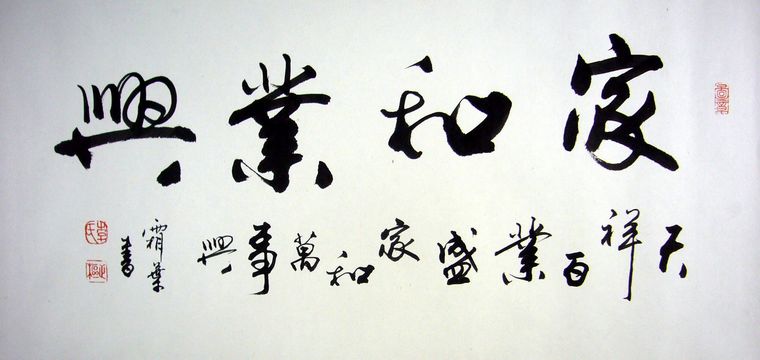 家和業興
天祥百業盛家和萬事興
霜葉
書